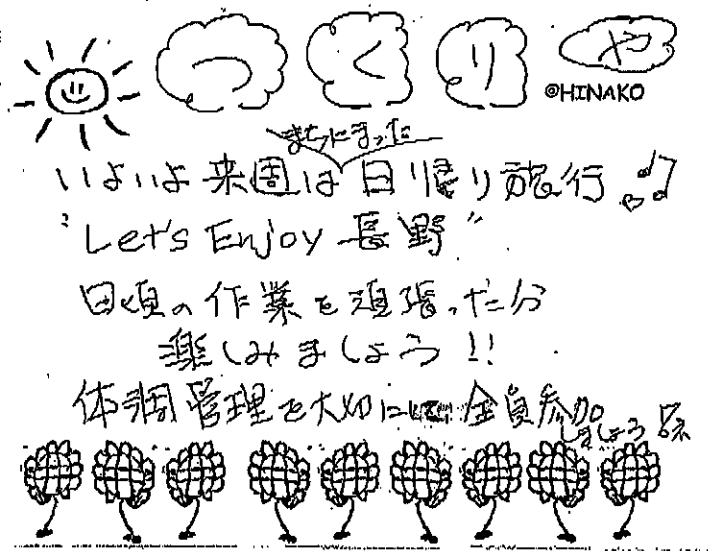 つくりや
@HINAKO
まちにまった
いよいよ来週は日帰り旅行♪
"Let's Enjoy 長野"
日頃の作業を頑張った分
楽しみましょう!!
体調管理を大切に 全員参加
しましょう